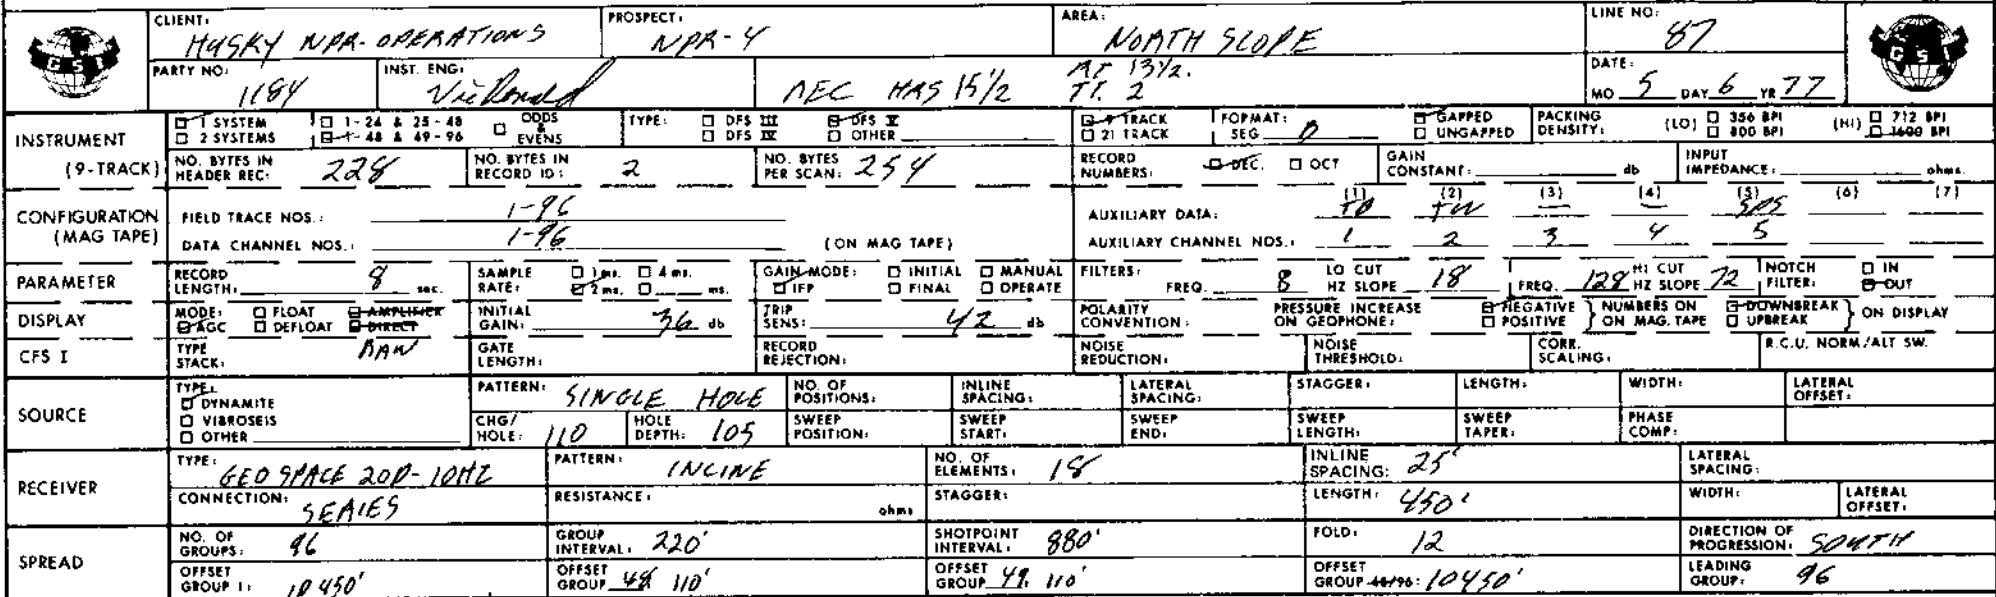 CLIENT: HUSKY NPR-OPERATIONS PROSPECT: NPR-4 AREA: NORTH SLOPE LINE NO: 87
GSI GSI
PARTY NO: 1184 INST. ENG: REC HAS 15 1/2 AT 13 1/2. TT. 2 DATE: MO 5 DAY 6 YR 77
INSTRUMENT 1 SYSTEM 1-24 & 25-48 ODDS & EVENS TYPE: DFS III DFS V 9 TRACK FORMAT: GAPPED PACKING DENSITY: (LO) 356 BPI (HI) 712 BPI
2 SYSTEMS 1-48 & 49-96 DFS IV OTHER 21 TRACK SEG D UNGAPPED 800 BPI 1600 BPI
(9-TRACK) NO. BYTES IN HEADER REC: 228 NO. BYTES IN RECORD ID: 2 NO. BYTES PER SCAN: 254 RECORD NUMBERS: DEC. OCT GAIN CONSTANT: db INPUT IMPEDANCE: ohms.
(1) (2) (3) (4) (5) (6) (7)
CONFIGURATION FIELD TRACE NOS.: 1-96 AUXILIARY DATA: TB TW — —
(MAG TAPE) DATA CHANNEL NOS.: 1-96 (ON MAG TAPE) AUXILIARY CHANNEL NOS.: 1 2 3 4 5
PARAMETER RECORD LENGTH: 8 sec. SAMPLE RATE: 1 ms. 4 ms. 2 ms. ms. GAIN MODE: INITIAL MANUAL IFP FINAL OPERATE FILTERS: FREQ. 8 LO CUT HZ SLOPE 18 FREQ. 128 HI CUT HZ SLOPE 72 NOTCH FILTER: IN OUT
DISPLAY MODE: FLOAT AMPLIFIER AGC DEFLOAT DIRECT INITIAL GAIN: 36 db TRIP SENS: 42 db POLARITY CONVENTION: PRESSURE INCREASE ON GEOPHONE: NEGATIVE POSITIVE NUMBERS ON ON MAG. TAPE DOWNBREAK UPBREAK ON DISPLAY
CFS I TYPE STACK: RAW GATE LENGTH: RECORD REJECTION: NOISE REDUCTION: NOISE THRESHOLD: CORR. SCALING: R.C.U. NORM/ALT SW.
SOURCE TYPE: DYNAMITE VIBROSEIS OTHER PATTERN: SINGLE HOLE NO. OF POSITIONS: INLINE SPACING: LATERAL SPACING: STAGGER: LENGTH: WIDTH: LATERAL OFFSET:
CHG/HOLE: 110 HOLE DEPTH: 105 SWEEP POSITION: SWEEP START: SWEEP END: SWEEP LENGTH: SWEEP TAPER: PHASE COMP:
RECEIVER TYPE: GEO SPACE 20D-10HZ PATTERN: INLINE NO. OF ELEMENTS: 18 INLINE SPACING: 25' LATERAL SPACING:
CONNECTION: SERIES RESISTANCE: ohms STAGGER: LENGTH: 450' WIDTH: LATERAL OFFSET:
SPREAD NO. OF GROUPS: 96 GROUP INTERVAL: 220' SHOTPOINT INTERVAL: 880' FOLD: 12 DIRECTION OF PROGRESSION: SOUTH
OFFSET GROUP 1: 10450' OFFSET GROUP 48: 110' OFFSET GROUP 49: 110' OFFSET GROUP 48/96: 10450' LEADING GROUP: 96